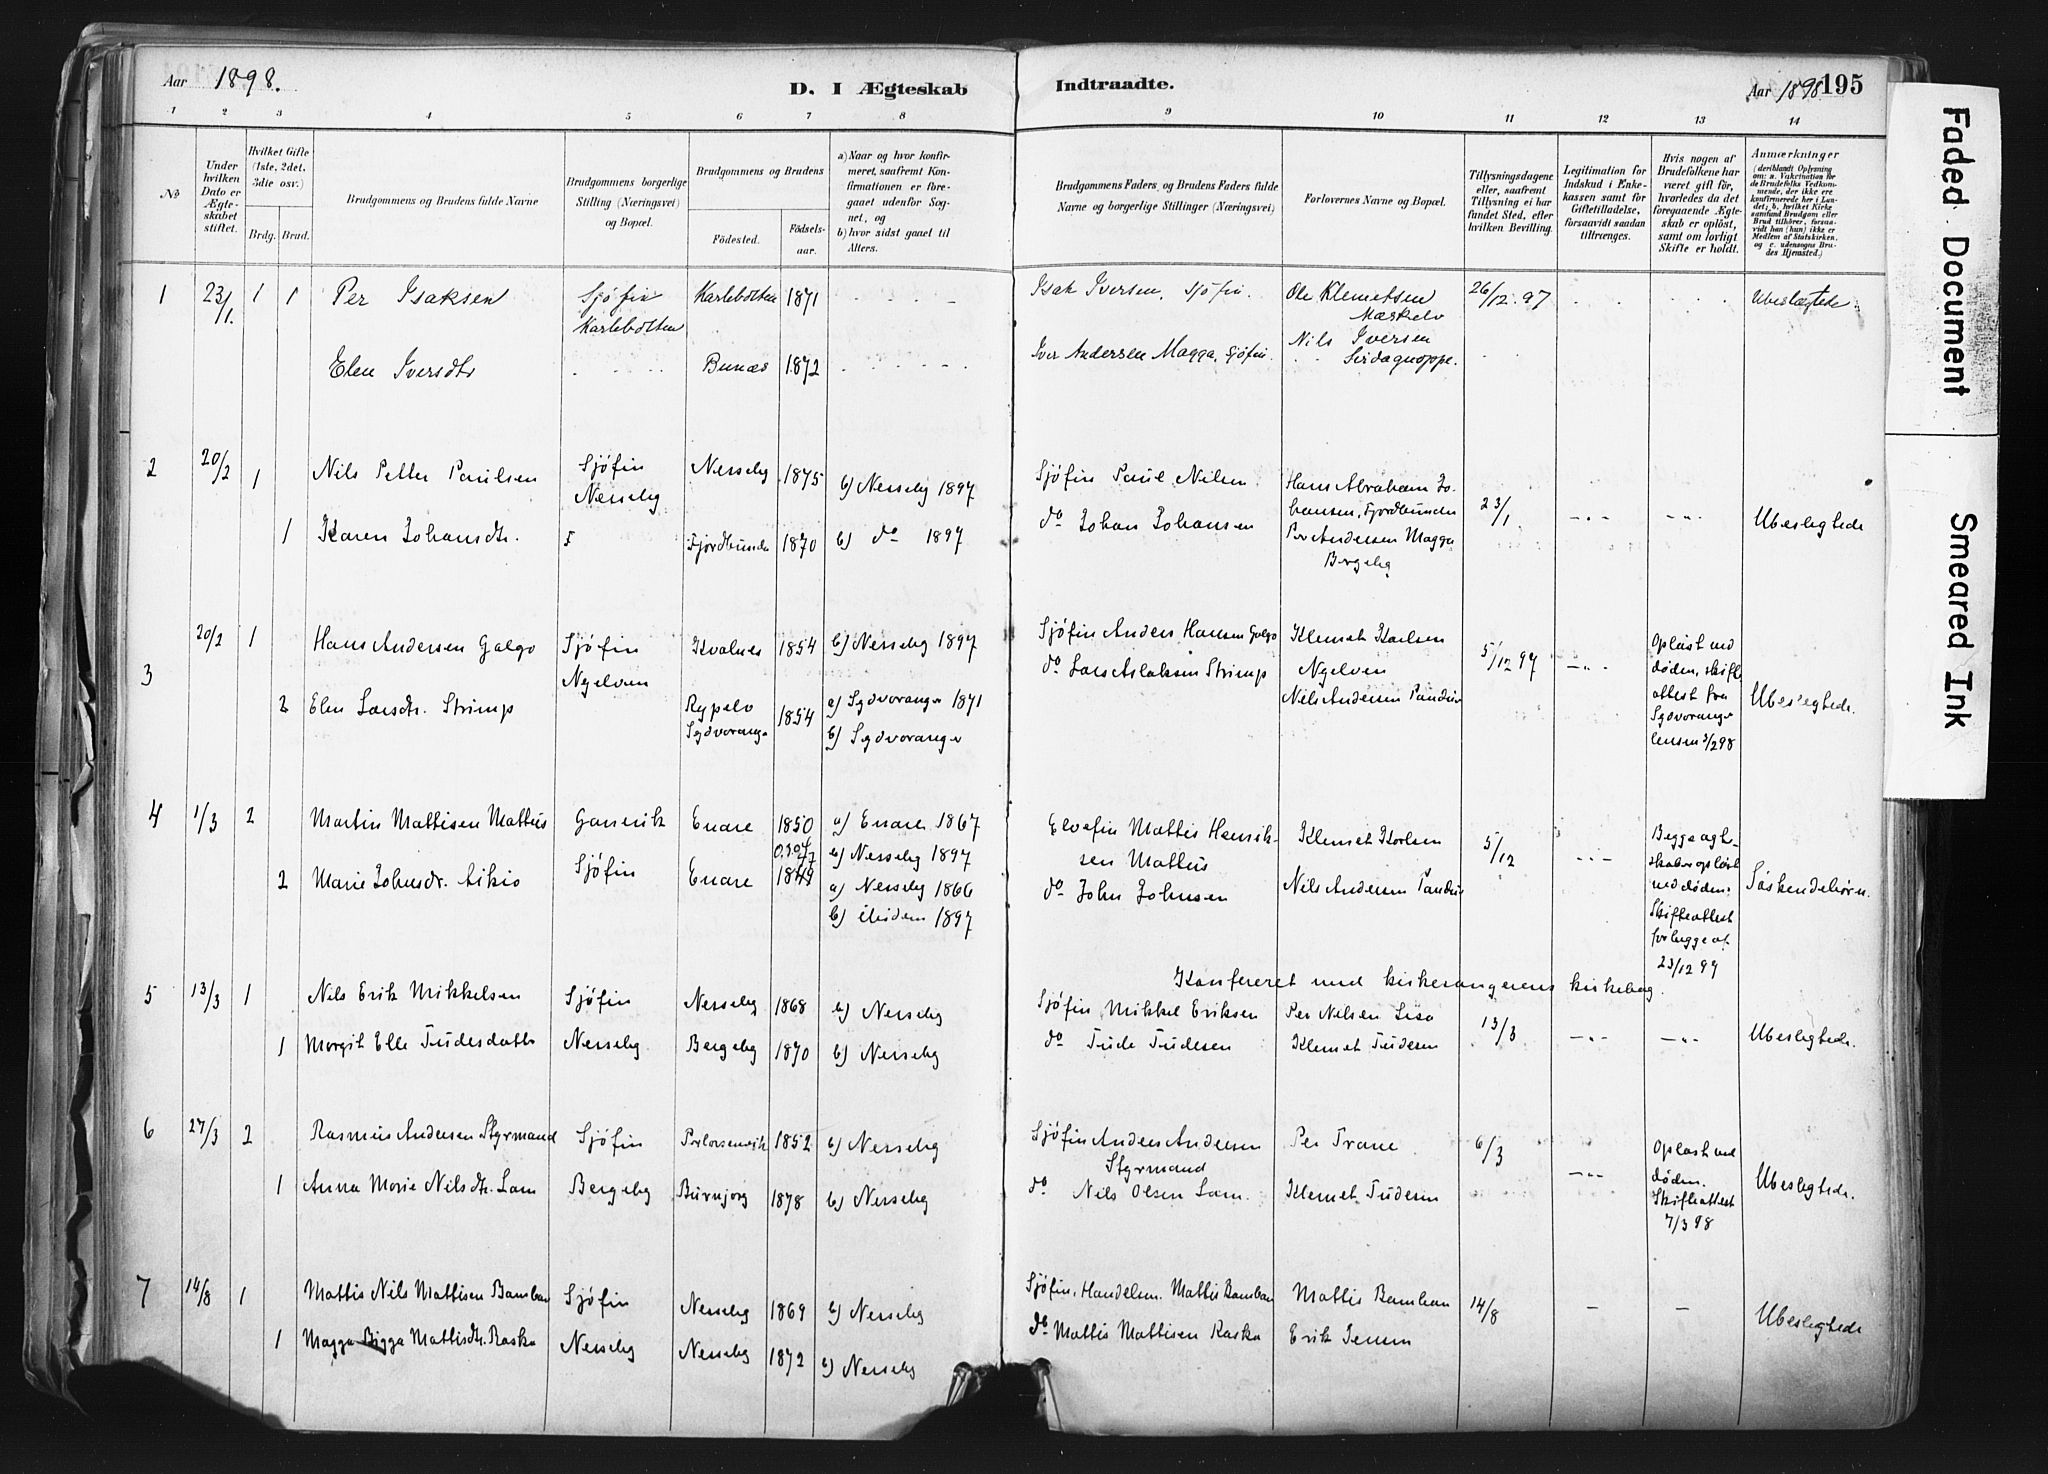 Aar 1898.
D. I Ægteskab Indtraadte.
Aar 1898. 195
1 2 3 4 5 6 7 8 9 10 11 12 13 14
№
Under hvilken Dato er Ægteskabet stiftet.
Hvilket Gifte (1ste, 2det, 3die osv.)
Brdg. Brud.
Brudgommens og Brudens fulde Navne
Brudgommens borgerlige Stilling (Næringsvei) og Bopæl.
Brudgommens og Brudens
Fødested.
Fødselsaar.
a) Naar og hvor konfirmeret, saafremt Konfirmationen er foregaaet udenfor Sognet, og
b) hvor sidst gaaet til Alters.
Brudgommens Faders, og Brudens Faders fulde Navne og borgerlige Stillinger (Næringsvei)
Forlovernes Navne og Bopæl.
Tillysningsdagene eller, saafremt Tillysning ei har fundet Sted, efter hvilken Bevilling.
Legitimation for Indskud i Enkekassen samt for Giftetilladelse, forsaavidt saadan tiltrænges.
Hvis nogen af Brudefolkene har været gift før, hvorledes da det foregaaende Ægteskab er opløst, samt om lovligt Skifte er holdt.
Anmærkninger (deriblandt Oplysning om: a. Vakcination for de Brudefolks Vedkommende, der ikke ere konfirmerede her i Landet; b. hvilket Kirkesamfund Brudgom eller Brud tilhører, forsaavidt han (hun) ikke er Medlem af Statskirken, og c. udensogns Brudes Hjemsted.)
1 23/1. 1 1 Per Isaksen Sjøfin Karlebotten Karlebotten 1871 Isak Iversen, Sjøfin. Ole Klemetsen Mæskelv 26/12. 97 Ubeslægtede
Elen Iversdtr Bunæs 1872 Iver Andersen Magga, Sjøfin. Nils Iversen Sirdagnoppe.
2 20/2 1 Nils Petter Paulsen Sjøfin Nesseby Nesseby 1875 b) Nesseby 1897 Sjøfin Paul Nilsen Hans Abraham Johansen, Fjordbunden 23/1
1 Karen Johansdtr. F Fjordbunden 1870 b) do 1897 do Johan Johansen Per Andersen Magga Bergeby Ubeslegtede
3 20/2 1 Hans Andersen Galgo Sjøfin Nyelven Kvalnes 1854 b) Nesseby 1897 Sjøfin Anders Hansen Galgo Klemet Karlsen Nyelven 5/12 97 Opløst ved døden, skifteattest fra Sydvaranger
2 Elen Larsdtr. Strimp Rypelv Sydvaranger 1854 a) Sydvaranger 1871 b) Sydvaranger do Lars Aslaksen Strimp Nils Andersen Ubeslegtede.
4 1/3 2 Martin Mattisen Mattus Enare 1850 a) Enare 1867 b) Nesseby 1897 Elvefin Mattis Henriksen Mattus Klemet Karlsen 5/12 Begge ægteskaber opløst ved døden. Skifteattest foreligge af 23/12 97
2 Marie Johnsdtr. Aikio Sjøfin Enare 1849 a) Nesseby 1866 b) ibidem 1897 do John Johnsen Nils Andersen Søskendebørn.
5 13/3 1 Nils Erik Mikkelsen Sjøfin Nesseby 1868 b) Nesseby
Konfereret med kirkesangerens kirkebog.
Sjøfin Mikkel Eriksen Per Nilsen Lisa 13/3
1 Margit Elle Tudesdatter Nesseby Bergeby 1870 b) Nesseby do Tude Tudesen Klemet Tudesen Ubeslegtede.
6 27/3 2 Rasmus Andersen Styrmand Sjøfin 1852 b) Nesseby Sjøfin Anders Andersen Styrmand Per Trane 6/3 Opløst ved døden. Skifteattest 7/3 98
1 Anna Marie Nilsdtr. Lam Bergeby Burnjarg 1878 b) Nesseby do Nils Olsen Lam. Klemet Tudesen Ubeslegtede.
7 14/8 1 Mattis Nils Mattisen Banban Sjøfin Nesseby 1869 b) Nesseby Sjøfin, Handelsm. Mattis Banban Mattis Banban 14/8
1 Magga Bigga Mattisdtr. Raska Nesseby Nesseby 1872 b) Nesseby do Mattis Mattisen Raska Erik Jensen Ubeslegtede
Faded Document
Smeared Ink